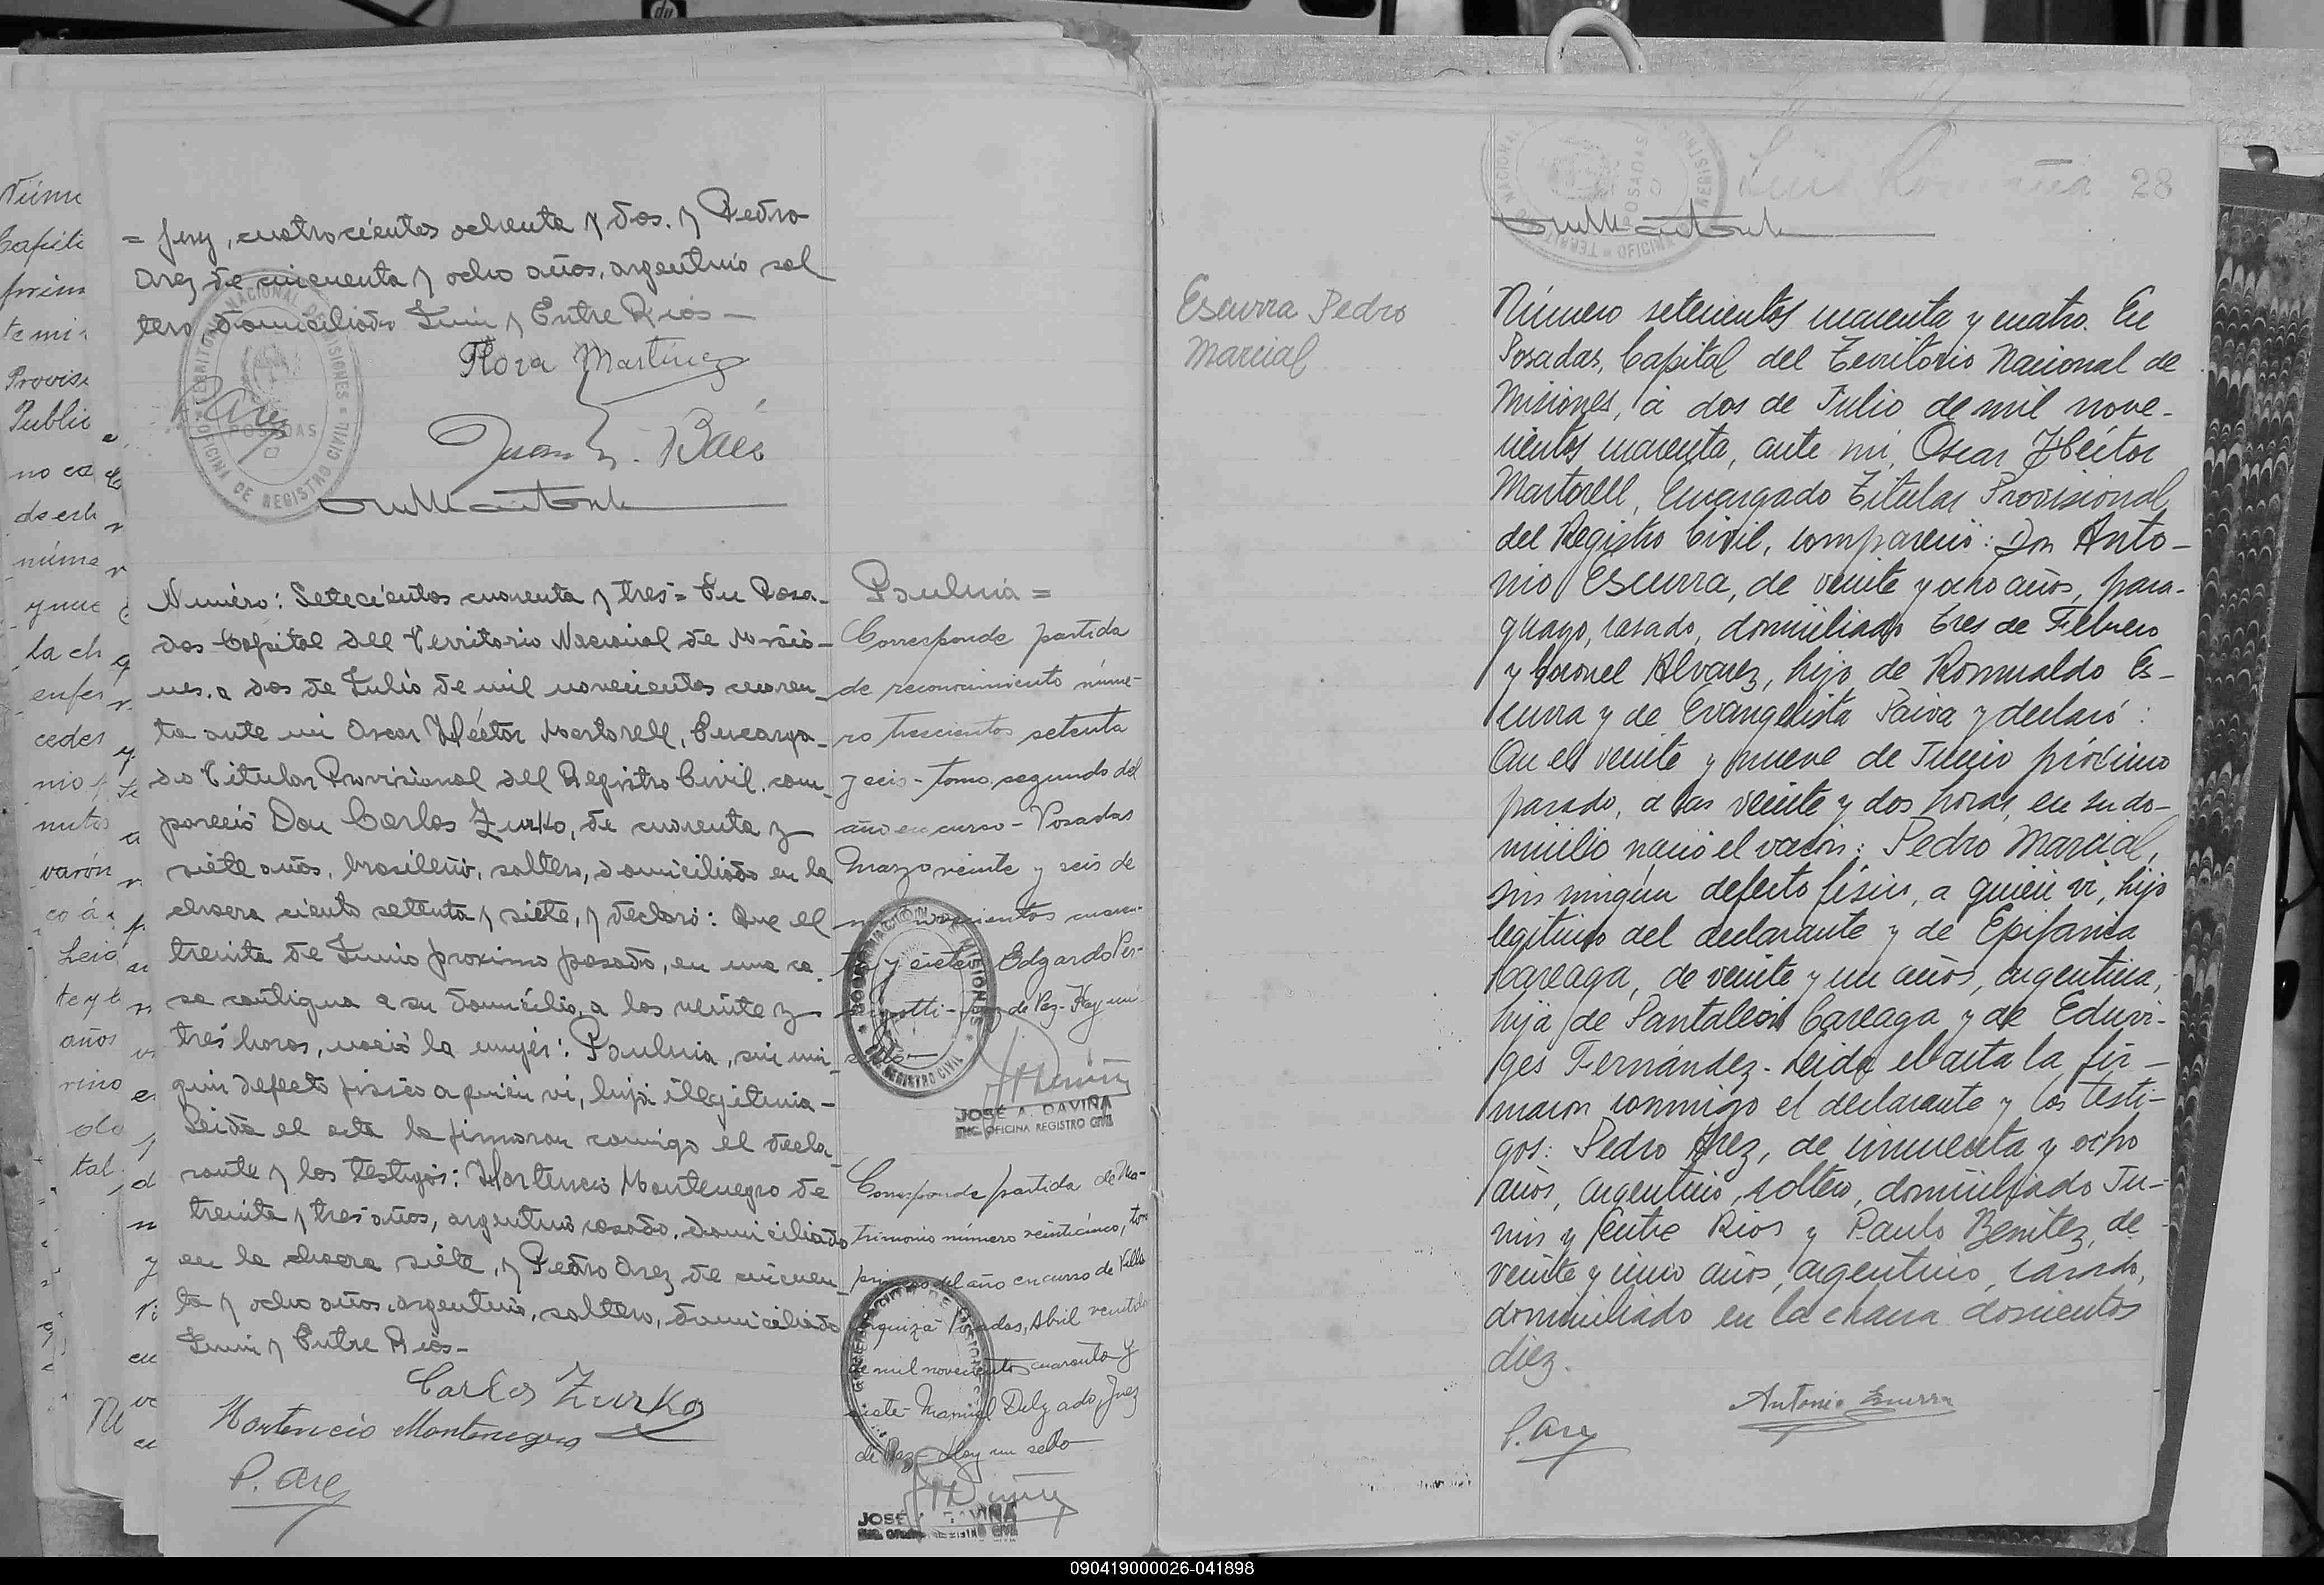 = Jeny, cuatrocientos ochenta y dos. y Pedro
Arez de cincuenta y ocho años, argentino sol
tero, domiciliado Junin y Entre Rios —
Flora Martínez
P. Arez
Juan B. Báez
Número: Setecientos cuarenta y tres = En Posa-
das Capital del Territorio Nacional de Misio-
nes, a dos de Julio de mil novecientos cuaren-
ta ante mi Oscar Héctor Martorell, Encarga-
do Titular Provisional del Registro Civil, com-
pareció Don Carlos Zurko, de cuarenta y
siete años, brasileño, soltero, domiciliado en la
chacra ciento setenta y siete, y declaró: Que el
treinta de Junio proximo pasado, en una ca-
sa contigua a su domicilio, a las veinte y
tres horas, nació la mujer: Paulina, sin nin-
gun defecto fisico a quien vi, hija ilegitima-
Leida el acta la firmaron conmigo el decla-
rante y los testigos: Hortencio Montenegro de
treinta y tres años, argentino casado, domiciliado
en la chacra siete, y Pedro Arez de cincuen-
ta y ocho años, argentino, soltero, domiciliado
Junin y Entre Rios-
Carlos Zurko
Hortencio Montenegro
P. Arez
Paulina =
Corresponde partida
de reconocimiento núme-
ro trescientos setenta
y seis - tomo segundo del
año en curso - Posadas
Marzo veinte y seis de
mil novecientos cuaren-
ta y siete Edgardo Per-
de Paz - Hay un
sello —
JOSÉ A. DAVIÑA
ENC. OFICINA REGISTRO CIVIL
Corresponde partida de Ma-
trimonio número veinticinco, tomo
primero del año en curso de Villa
Urquiza Posadas, Abril veintidos
de mil novecientos cuarenta y
siete - Manuel Delgado, Juez
de Paz - Hay un sello
JOSÉ A. DAVIÑA
ENC. OFICINA REGISTRO CIVIL
28
Escurra Pedro
Marcial
Número setecientos cuarenta y cuatro. En
Posadas, Capital del Territorio Nacional de
Misiones, á dos de Julio de mil nove-
cientos cuarenta, ante mi, Oscar Héctor
Martorell, Encargado Titular Provisional
del Registro Civil, compareció: Don Anto-
nio Escurra, de veinte y ocho años, para-
guayo, casado, domiciliado Tres de Febrero
y Coronel Alvarez, hijo de Romualdo Es-
curra y de Evangelista Paiva y declaró:
Que el veinte y nueve de Junio próximo
pasado, a las veinte y dos horas, en su do-
micilio nació el varón: Pedro Marcial,
sin ningún defecto físico, a quien vi, hijo
legitimo del declarante y de Epifania
Careaga, de veinte y un años, argentina,
hija de Pantaleón Careaga y de Eduvi-
ges Fernández. Leida el acta la fir-
maron conmigo el declarante y los testi-
gos: Pedro Arez, de cincuenta y ocho
años, argentino, soltero, domiciliado Ju-
nin y Entre Rios y Paulo Benitez, de
veinte y cinco años, argentino, casado,
domiciliado en la chacra doscientos
diez.
Antonio Escurra
P. Arez
090419000026-041898